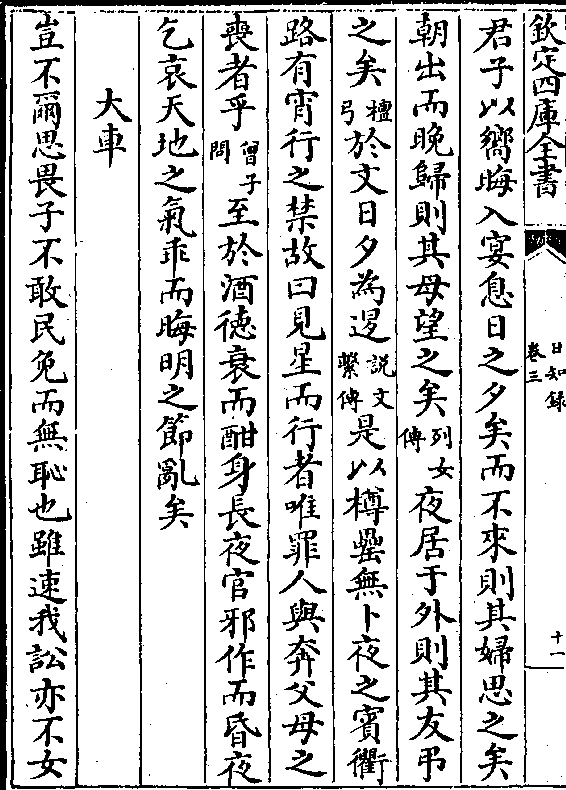 欽定四庫全書
日知錄
卷三
十一
君子以嚮晦入宴息日之夕矣而不來則其婦思之矣
朝出而晚歸則其母望之矣列女傳夜居于外則其友弔
之矣檀弓於文日夕為退説文繫傳是以樽罍無卜夜之賓衢
路有宵行之禁故曰見星而行者唯罪人與奔父母之
喪者乎曾子問至於酒徳衰而酣身長夜官邪作而昏夜
乞哀天地之氣乖而晦明之節亂矣
大車
豈不爾思畏子不敢民免而無恥也雖速我訟亦不女